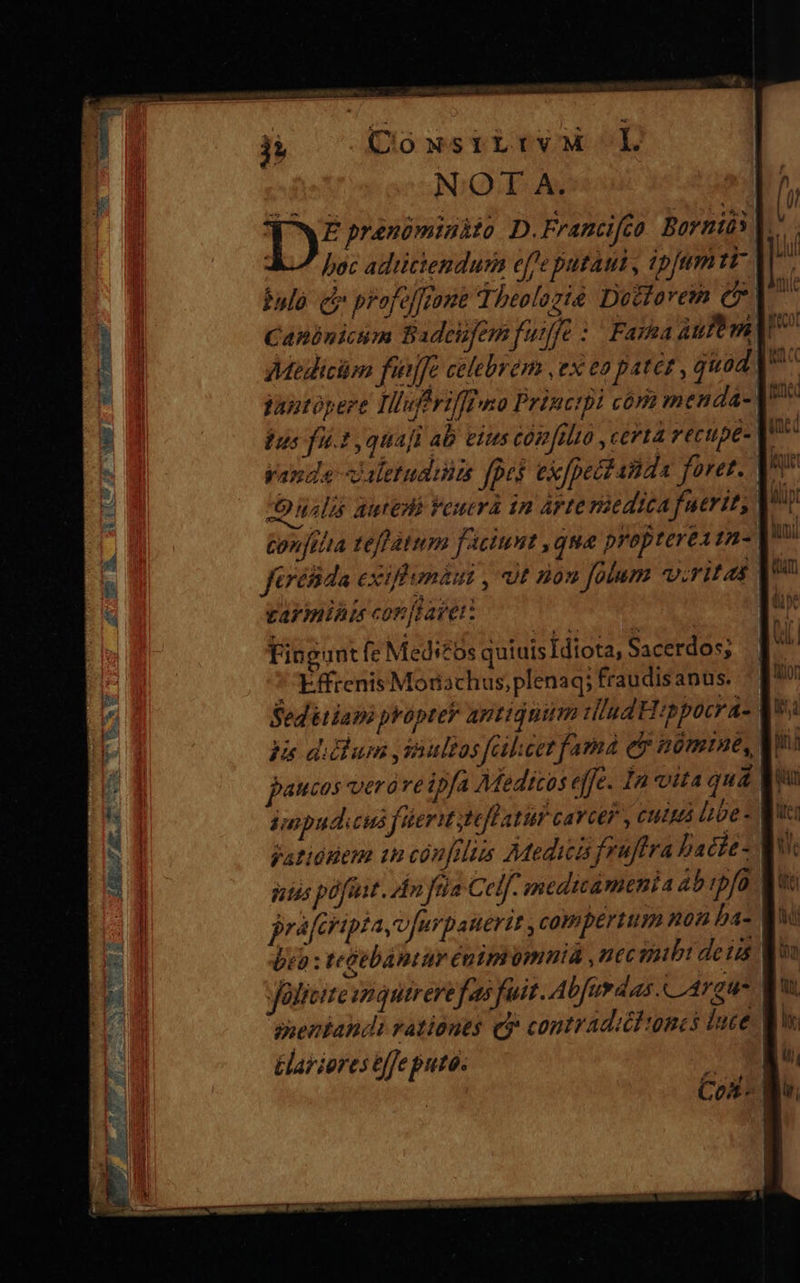 32 CONSILIVM I.
NOTA.
DE prænominato D. Francisco Bornio,
hoc adiiciendum esse putaui, ipsum ti-
tulo & professione Theologiæ Doctorem &
Canonicum fuisse: Fama autem
Medicum fuisse celebrem, ex eo patet, quod
tantopere Illustrissimo Principi commenda-
tus fuit, quasi ab eius consilio, certa recupe-
randæ valetudinis spes exspectanda foret.
Qualis autem reuera in arte medica fuerit,
consilia testatum faciunt, quæ propterea in-
ferenda existimaui, vt non solum veritas
carminis constaret:
Fingunt se Medicos quiuis Idiota, Sacerdos;
Effrenis Monachus, plenaq; fraudis anus.
Sed etiam propter antiquum illud Hippocra-
tis dictum, multos scilicet fama & nomine,
paucos vero re ipsa Medicos esse. In vita quá
impudicus fuerit, testatur carcer, cuius libe-
rationem in consiliis Medicis frustra hacte-
nus posuit. An sua Celf. medicamenta ab ipso
præscripta, vsurpauerit, compertum non ha-
beo: tegebantur enim omnia, nec mihi de iis
solicite inquirere fas fuit. Absurdas Argu-
mentandi rationes & contradictiones luce
clariores esse puto.
Con-